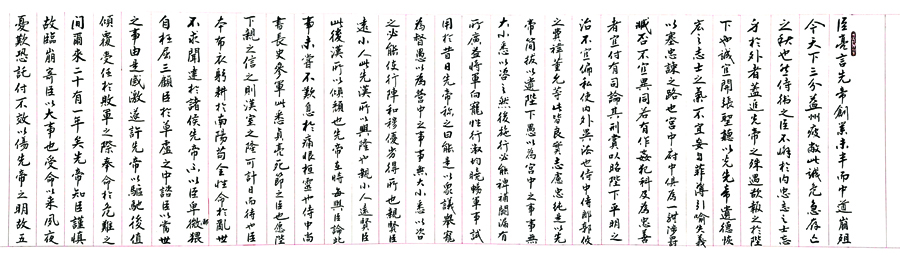 臣亮言先帝創業未半而中道崩殂
今天下三分益州疲敝此誠危急存亡
之秋也然侍衛之臣不懈於內忠志之士忘
身於外者蓋追先帝之殊遇欲報之於陛
下也誠宜開張聖聽以光先帝遺德恢
宏志士之氣不宜妄自菲薄引喻失義
以塞忠諫之路也宮中府中俱為一體陟罰
臧否不宜異同若有作姦犯科及為忠善
者宜付有司論其刑賞以昭陛下平明之
治不宜偏私使內外異法也侍中侍郎郭攸
之費禕董允等此皆良實志慮忠純是以先
帝簡拔以遺陛下愚以為宮中之事事無
大小悉以咨之然後施行必能裨補闕漏有
所廣益將軍向寵性行淑均曉暢軍事試
用於昔日先帝稱之曰能是以眾議舉寵
為督愚以為營中之事事無大小悉以咨
之必能使行陣和穆優劣得所也親賢臣
遠小人此先漢所以興隆也親小人遠賢臣
此後漢所以傾頹也先帝在時每與臣論此
事未嘗不歎息於痛恨桓靈也侍中尚
書長史參軍此悉貞亮死節之臣也願陛
下親之信之則漢室之隆可計日而待也臣
本布衣躬耕於南陽苟全性命於亂世
不求聞達於諸侯先帝不以臣卑鄙猥
自枉屈三顧臣於草廬之中諮臣以當世
之事由是感激遂許先帝以驅馳後值
傾覆受任於敗軍之際奉命於危難之
間爾來二十有一年矣先帝知臣謹慎
故臨崩寄臣以大事也受命以來夙夜
憂歎恐託付不效以傷先帝之明故五